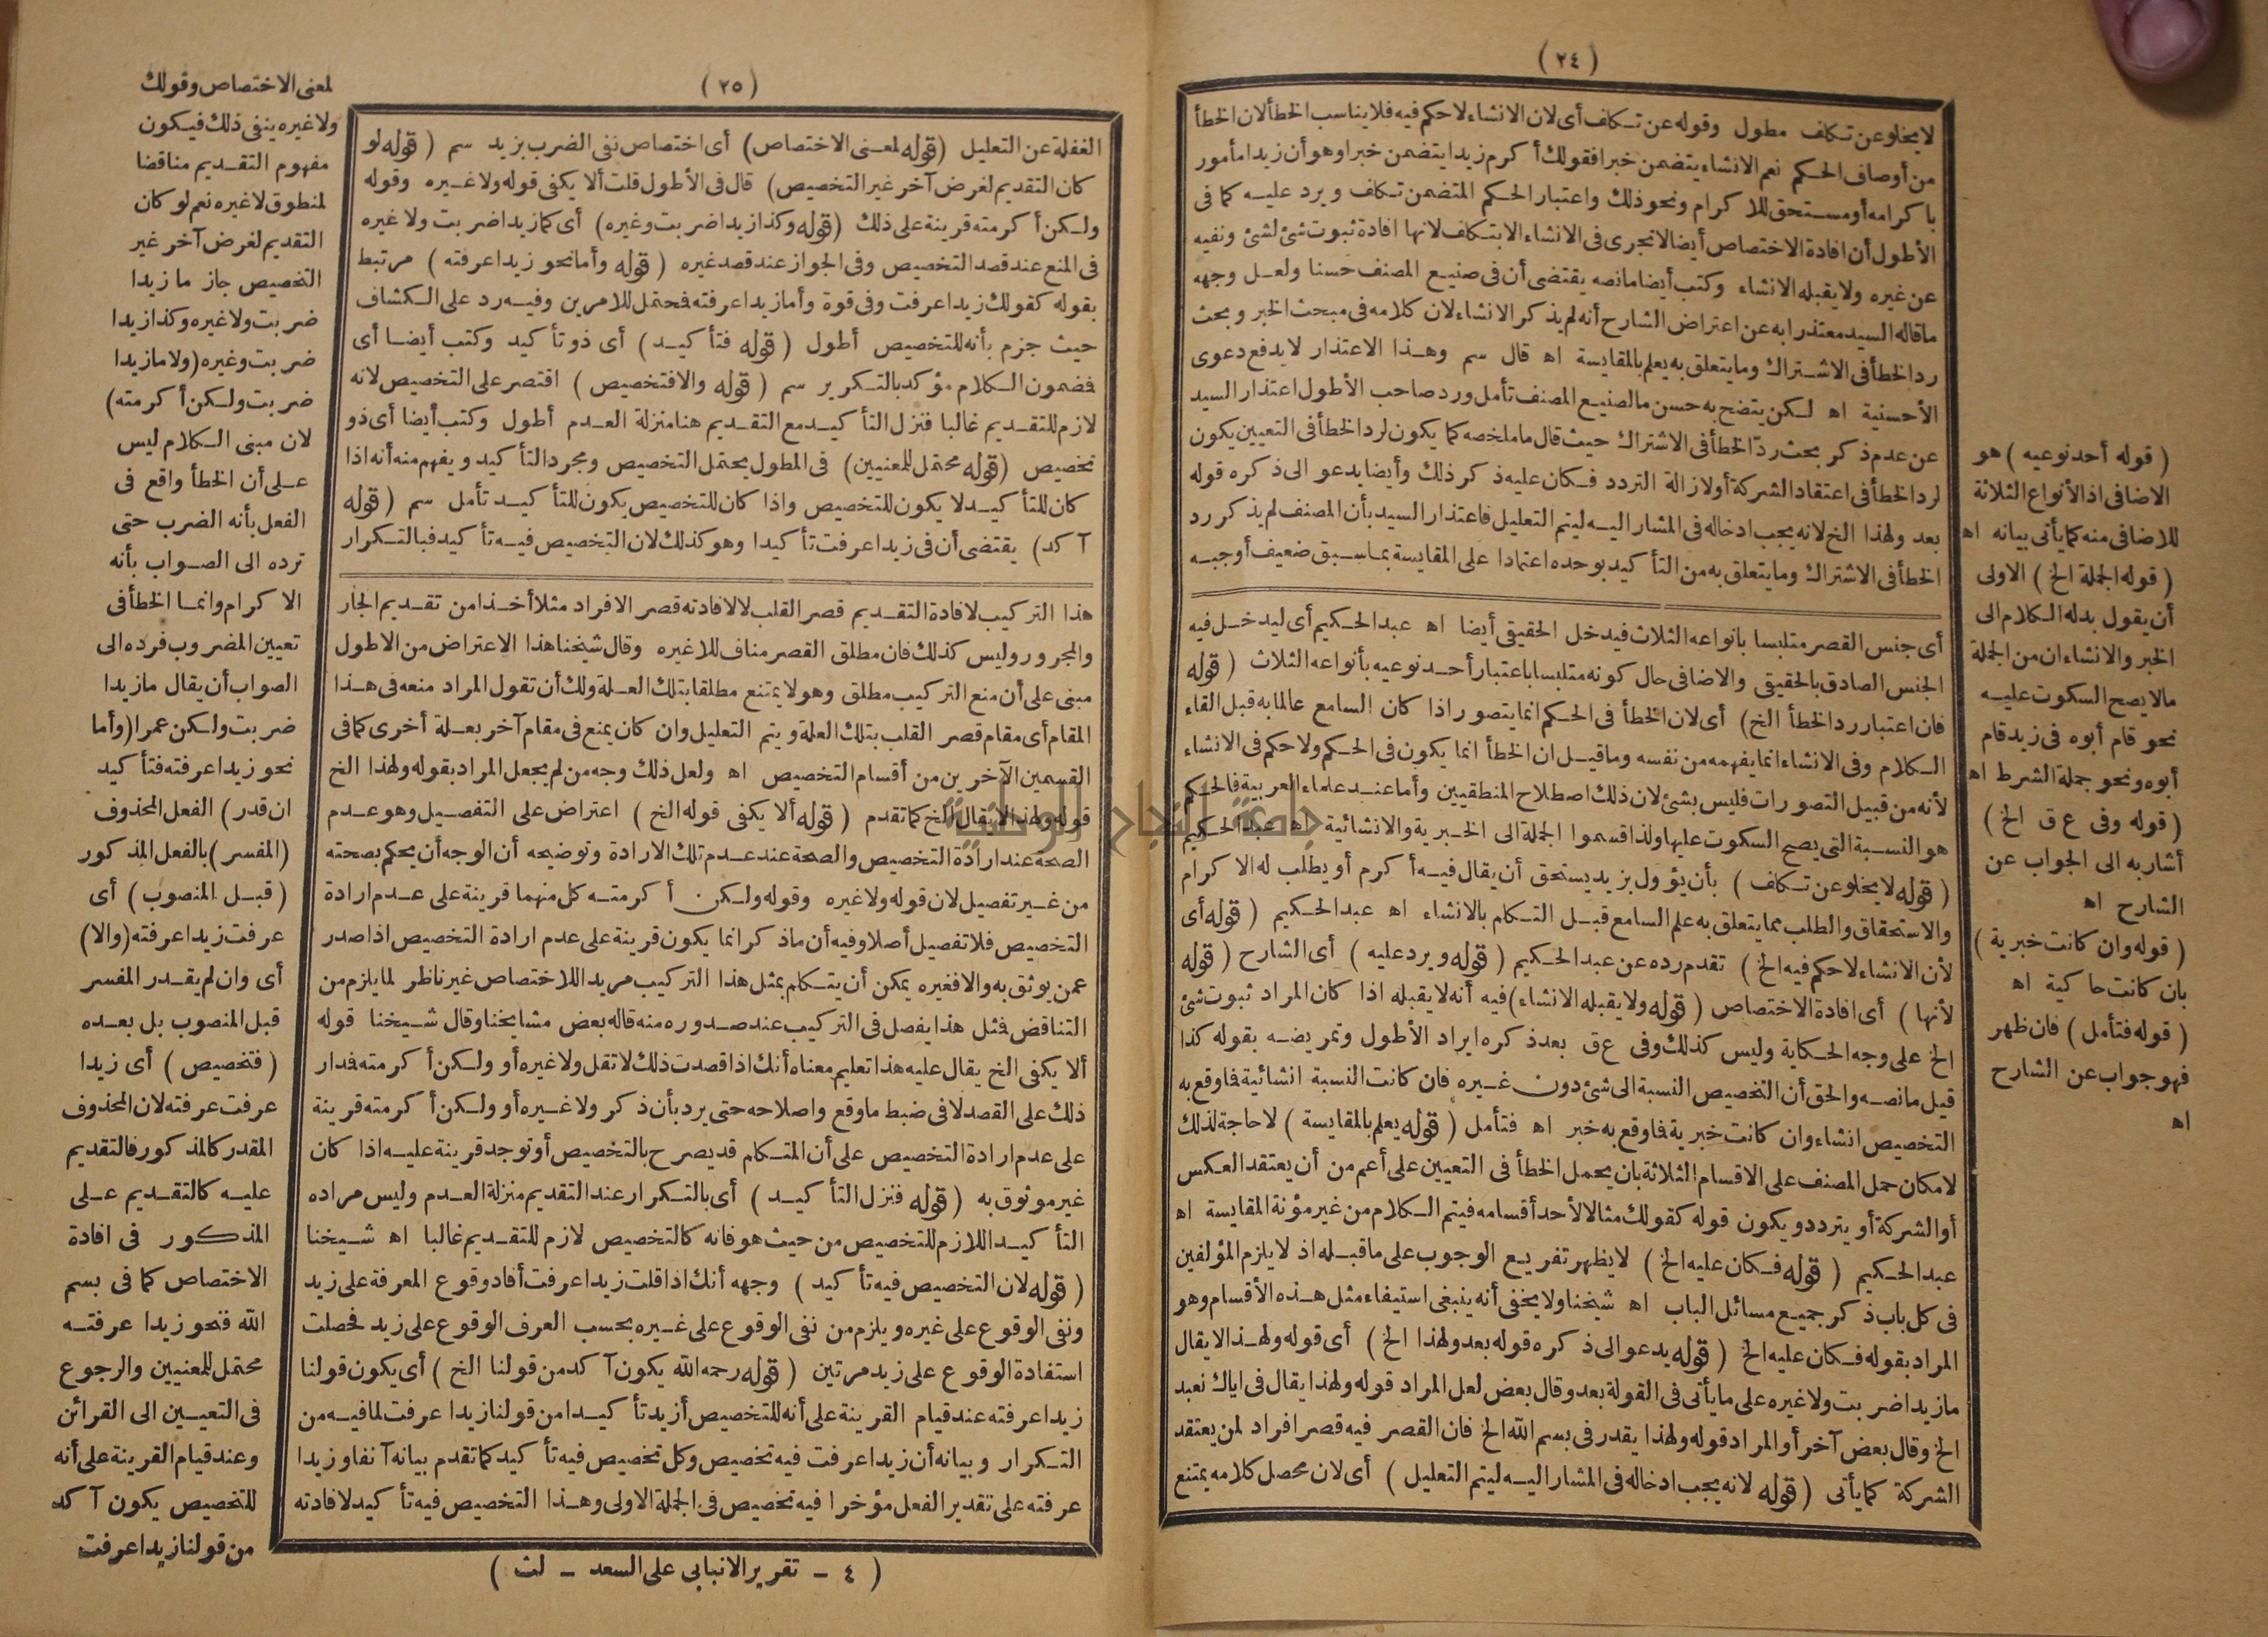 ( ٢٤ )
لا يخلو عن تكلف مطول وقوله عن تكلف أى لان الانشاء لا حكم فيه فلا يناسب الخطأ لان الخطأ
من أوصاف الحكم نعم الانشاء يتضمن خبرا فقولك أكرم زيدا يتضمن خبرا وهو أن زيدا مأمور
باكرامه أو مستحق للاكرام ونحو ذلك واعتبار الحكم المتضمن تكلف ويرد عليه كما فى
الأطول أن افادة الاختصاص أيضا لا تجرى فى الانشاء الا بتكلف لانها افادة ثبوت شئ لشئ ونفيه
عن غيره ولا يقبله الانشاء وكتب أيضا ما نصه يقتضى أن فى صنيع المصنف حسنا ولعل وجهه
ما قاله السيد معتذرا به عن اعتراض الشارح أنه لم يذكر الانشاء لان كلامه فى مبحث الخبر وبحث
رد الخطأ فى الاشتراك وما يتعلق به يعلم بالمقايسة اه قال سم وهذا الاعتذار لا يدفع دعوى
الأحسنية اه لكن يتضح به حسن ما لصنيع المصنف تأمل ورد صاحب الأطول اعتذار السيد
عن عدم ذكر بحث ردّ الخطأ فى الاشتراك حيث قال ما ملخصه كما يكون لرد الخطأ فى التعيين يكون
لرد الخطأ فى اعتقاد الشركة أو لازالة التردد فكان عليه ذكر ذلك وأيضا يدعو الى ذكره قوله
بعد ولهذا الخ لانه يجب ادخاله فى المشار اليه ليتم التعليل فاعتذار السيد بأن المصنف لم يذكر رد
الخطأ فى الاشتراك وما يتعلق به من التأكيد بوحده اعتمادا على المقايسة بما سبق ضعيف أوجبه
أى جنس القصر متلبسا بانواعه الثلاث فيدخل الحقيقى أيضا اه عبد الحكيم أى ليدخل فيه
الجنس الصادق بالحقيقى والاضافى حال كونه متلبسا باعتبار أحد نوعيه بأنواعه الثلاث (قوله
فان اعتبار رد الخطأ الخ) أى لان الخطأ فى الحكم انما يتصور اذا كان السامع عالما به قبل القاء
الكلام وفى الانشاء انما يفهمه من نفسه وما قيل ان الخطأ انما يكون فى الحكم ولا حكم فى الانشاء
لأنه من قبيل التصورات فليس بشئ لان ذلك اصطلاح المنطقيين وأما عند علماء العربية فالحكم
هو النسبة التى يصح السكوت عليها ولذا قسموا الجملة الى الخبرية والانشائية اه عبد الحكيم
(قوله لا يخلو عن تكلف) بأن يؤول بزيد يستحق أن يقال فيه أكرم أو يطلب له الاكرام
والاستحقاق والطلب مما يتعلق به علم السامع قبل التكلم بالانشاء اه عبد الحكيم (قوله أى
لأن الانشاء لا حكم فيه الخ) تقدم رده عن عبد الحكيم (قوله ويرد عليه) أى الشارح (قوله
لأنها) أى افادة الاختصاص (قوله ولا يقبله الانشاء) فيه أنه لا يقبله اذا كان المراد ثبوت شئ
الخ على وجه الحكاية وليس كذلك وفى ع ق بعد ذكره ايراد الأطول وتمريضه بقوله كذا
قيل ما نصه والحق أن التخصيص النسبة الى شئ دون غيره فان كانت النسبة انشائية فما وقع به
التخصيص انشاء وان كانت خبرية فما وقع به خبر اه فتأمل (قوله يعلم بالمقايسة) لا حاجة لذلك
لامكان حمل المصنف على الاقسام الثلاثة بان يحمل الخطأ فى التعيين على أعم من أن يعتقد العكس
أو الشركة أو يتردد ويكون قوله كقولك مثالا لأحد أقسامه فيتم الكلام من غير مؤنة المقايسة اه
عبد الحكيم (قوله فكان عليه الخ) لا يظهر تفريع الوجوب على ما قبله اذ لا يلزم المؤلفين
فى كل باب ذكر جميع مسائل الباب اه شيخنا ولا يخفى أنه ينبغى استيفاء مثل هذه الأقسام وهو
المراد بقوله فكان عليه الخ (قوله يدعو الى ذكره قوله بعد ولهذا الخ) أى قوله ولهذا لا يقال
ما زيدا ضربت ولا غيره على ما يأتى فى القولة بعد وقال بعض لعل المراد قوله ولهذا يقال فى اياك نعبد
الخ وقال بعض آخر أو المراد قوله ولهذا يقدر فى بسم الله الخ فان القصر فيه قصر افراد لمن يعتقد
الشركة كما يأتى (قوله لانه يجب ادخاله فى المشار اليه ليتم التعليل) أى لان محصل كلامه يمتنع
(قوله أحد نوعيه) هو
الاضافى اذ الأنواع الثلاثة
للاضافى منه كما يأتى بيانه اه
(قوله الجملة الخ) الاولى
أن يقول بدله الكلام الى
الخبر والانشاء ان من الجملة
ما لا يصح السكوت عليه
نحو قام أبوه فى زيد قام
أبوه ونحو جملة الشرط اه
(قوله وفى ع ق الخ)
أشار به الى الجواب عن
الشارح اه
(قوله وان كانت خبرية)
بان كانت حاكية اه
(قوله فتأمل) فان ظهر
فهو جواب عن الشارح
اه
( ٢٥ )
الغفلة عن التعليل (قوله لمعنى الاختصاص) أى اختصاص نفى الضرب بزيد سم (قوله لو
كان التقديم لغرض آخر غير التخصيص) قال فى الأطول قلت ألا يكفى قوله ولا غيره وقوله
ولكن أكرمته قرينة على ذلك (قوله وكذا زيدا ضربت وغيره) أى كما زيدا ضربت ولا غيره
فى المنع عند قصد التخصيص وفى الجواز عند قصد غيره (قوله وأما نحو زيدا عرفته) مرتبط
بقوله كقولك زيدا عرفت وفى قوة وأما زيدا عرفته فمحتمل للامرين وفيه رد على الكشاف
حيث جزم بأنه للتخصيص أطول (قوله فتأكيد) أى ذو تأكيد وكتب أيضا أى
فمضمون الكلام مؤكد بالتكرير سم (قوله والا فتخصيص) اقتصر على التخصيص لانه
لازم للتقديم غالبا فنزل التأكيد مع التقديم هنا منزلة العدم أطول وكتب أيضا أى ذو
تخصيص (قوله محتمل للمعنيين) فى المطول يحتمل التخصيص ومجرد التأكيد ويفهم منه أنه اذا
كان للتأكيد لا يكون للتخصيص واذا كان للتخصيص يكون للتأكيد تأمل سم (قوله
آكد) يقتضى أن فى زيدا عرفت تأكيدا وهو كذلك لان التخصيص فيه تأكيد فبالتكرار
هذا التركيب لافادة التقديم قصر القلب لا لافادته قصر الافراد مثلا أخذا من تقديم الجار
والمجرور وليس كذلك فان مطلق القصر مناف للاغيره وقال شيخنا هذا الاعتراض من الاطول
مبنى على أن منع التركيب مطلق وهو لا يمتنع مطلقا بتلك العلة ولك أن تقول المراد منعه فى هذا
المقام أى مقام قصر القلب بتلك العلة ويتم التعليل وان كان يمنع فى مقام آخر بعلة أخرى كما فى
القسمين الآخرين من أقسام التخصيص اه ولعل ذلك وجه من لم يجعل المراد بقوله ولهذا الخ
قوله ولهذا لا يقال الخ كما تقدم (قوله ألا يكفى قوله الخ) اعتراض على التفصيل وهو عدم
الصحة عند ارادة التخصيص والصحة عند عدم تلك الارادة وتوضيحه أن الوجه أن يحكم بصحته
من غير تفصيل لان قوله ولا غيره وقوله ولكن أكرمته كل منهما قرينة على عدم ارادة
التخصيص فلا تفصيل أصلا وفيه أن ما ذكر انما يكون قرينة على عدم ارادة التخصيص اذا صدر
عمن يوثق به والا فغيره يمكن أن يتكلم بمثل هذا التركيب مريدا للاختصاص غير ناظر لما يلزم من
التناقض فمثل هذا يفصل فى التركيب عند صدوره منه قاله بعض مشايخنا وقال شيخنا قوله
ألا يكفى الخ يقال عليه هذا تعليم معناه أنك اذا قصدت ذلك لا تقل ولا غيره أو ولكن أكرمته فمدار
ذلك على القصد لا فى ضبط ما وقع واصلاحه حتى يرد بأن ذكر ولا غيره أو ولكن أكرمته قرينة
على عدم ارادة التخصيص على أن المتكلم قد يصرح بالتخصيص أو توجد قرينة عليه اذا كان
غير موثوق به (قوله فنزل التأكيد) أى بالتكرار عند التقديم منزلة العدم وليس مراده
التأكيد اللازم للتخصيص من حيث هو فانه كالتخصيص لازم للتقديم غالبا اه شيخنا
(قوله لان التخصيص فيه تأكيد) وجهه أنك اذا قلت زيدا عرفت أفاد وقوع المعرفة على زيد
ونفى الوقوع على غيره ويلزم من نفى الوقوع على غيره بحسب العرف الوقوع على زيد فحصلت
استفادة الوقوع على زيد مرتين (قوله رحمه الله يكون آكد من قولنا الخ) أى يكون قولنا
زيدا عرفته عند قيام القرينة على أنه للتخصيص أزيد تأكيدا من قولنا زيدا عرفت لما فيه من
التكرار وبيانه أن زيدا عرفت فيه تخصيص وكل تخصيص فيه تأكيد كما تقدم بيانه آنفا وزيدا
عرفته على تقدير الفعل مؤخرا فيه تخصيص فى الجملة الاولى وهذا التخصيص فيه تأكيد لافادته
لمعنى الاختصاص وقولك
ولا غيره ينفى ذلك فيكون
مفهوم التقديم مناقضا
لمنطوق لا غيره نعم لو كان
التقديم لغرض آخر غير
التخصيص جاز ما زيدا
ضربت ولا غيره وكذا زيدا
ضربت وغيره (ولا ما زيدا
ضربت ولكن أكرمته)
لان مبنى الكلام ليس
على أن الخطأ واقع فى
الفعل بأنه الضرب حتى
ترده الى الصواب بأنه
الاكرام وانما الخطأ فى
تعيين المضروب فرده الى
الصواب أن يقال ما زيدا
ضربت ولكن عمرا (وأما
نحو زيدا عرفته فتأكيد
ان قدر) الفعل المحذوف
(المفسر) بالفعل المذكور
(قبل المنصوب) أى
عرفت زيدا عرفته (والا)
أى وان لم يقدر المفسر
قبل المنصوب بل بعده
(فتخصيص) أى زيدا
عرفت عرفته لان المحذوف
المقدر كالمذكور فالتقديم
عليه كالتقديم على
المذكور فى افادة
الاختصاص كما فى بسم
الله فنحو زيدا عرفته
محتمل للمعنيين والرجوع
فى التعيين الى القرائن
وعند قيام القرينة على أنه
للتخصيص يكون آكد
من قولنا زيدا عرفت
( ٤ - تقرير الانبابى على السعد - لث )
جامعة النجاح الوطنية